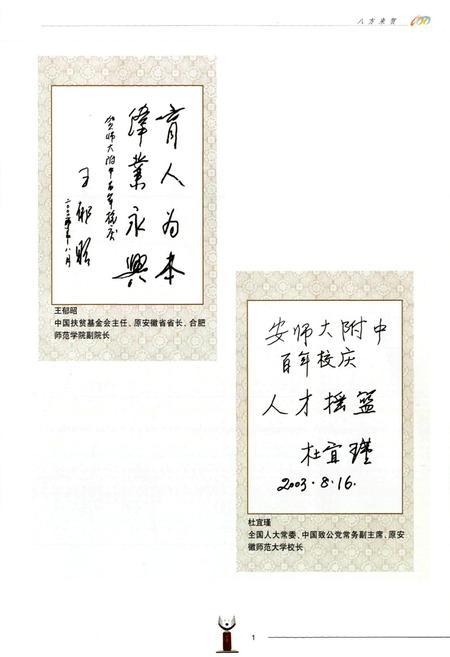 八方来贺
育人为本
伟业永兴
安师大附中百年校庆
王郁昭
二〇〇三年八月
王郁昭
中国扶贫基金会主任、原安徽省省长，合肥
师范学院副院长
安师大附中
百年校庆
人才摇篮
杜宜瑾
2003.8.16.
杜宜瑾
全国人大常委、中国致公党常务副主席、原安
徽师范大学校长
1